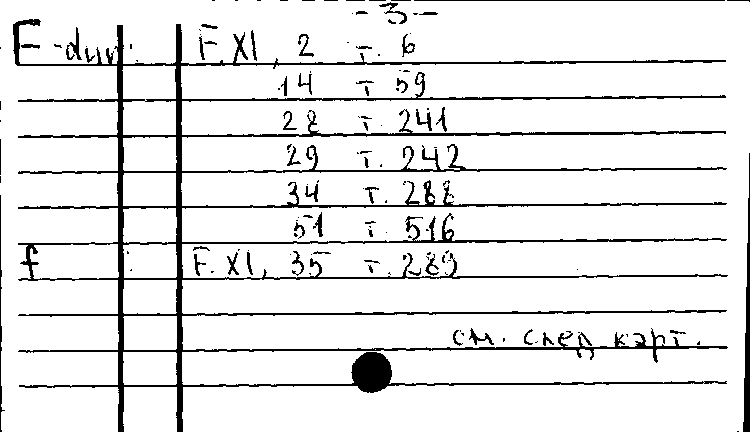 -3-
F-dur: F. XI, 2 т. 6
14 т 59
28 т. 241
29 т. 242
34 т. 288
51 т. 516
f : F. XI, 35 т. 289
см. след карт.